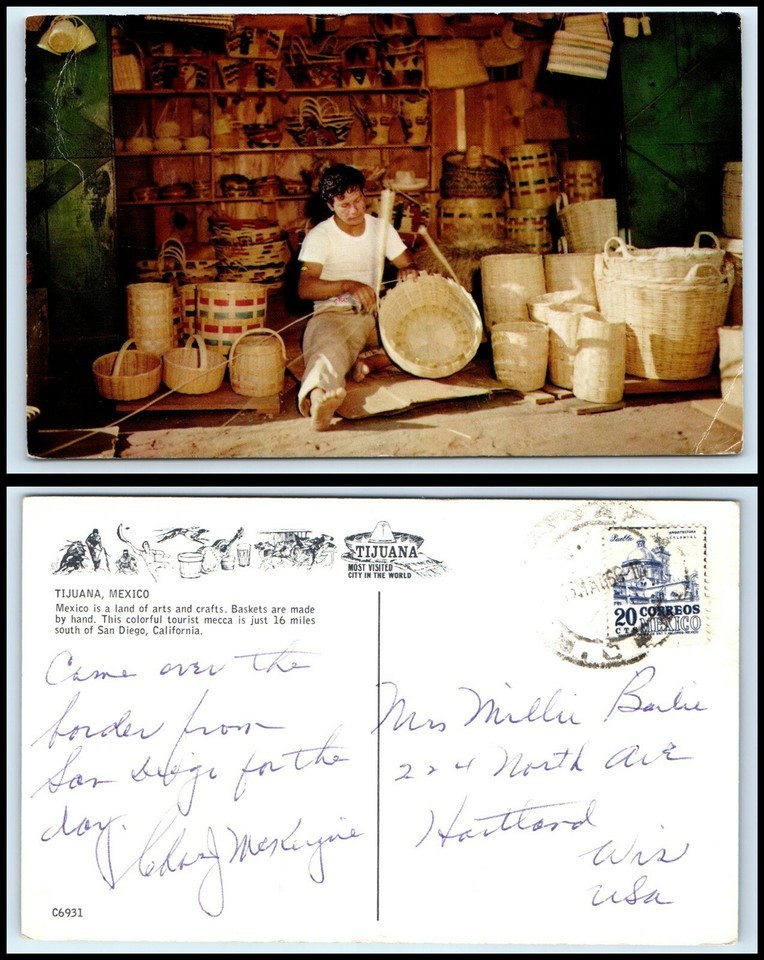 TIJUANA
MOST VISITED
CITY IN THE WORLD
TIJUANA, MEXICO
Mexico is a land of arts and crafts. Baskets are made
by hand. This colorful tourist mecca is just 16 miles
south of San Diego, California.
Came over the
border from
San Diego for the
day.
Chas J McKenzie
C6931
Puebla
ARQUITECTURA
COLONIAL
20 CORREOS
CTS MEXICO
Mrs Millie Barlie
224 North Ave
Hartland
Wis
USA